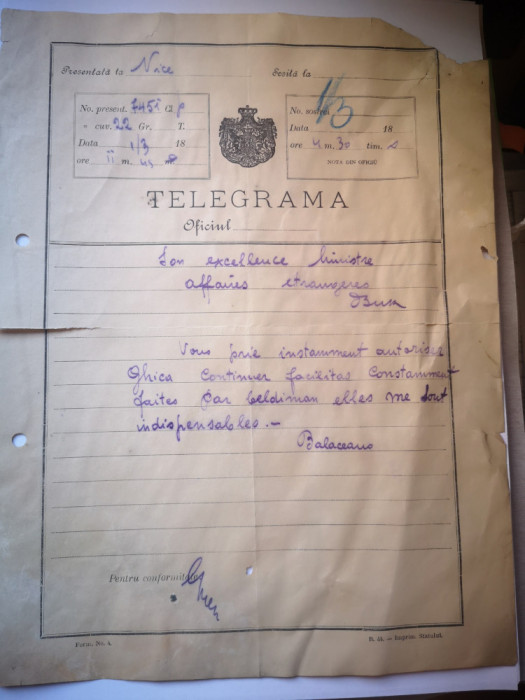 Presentată la Nice
Sosită la
No. present. 7451 Cl p
« cuv. 22 Gr. T.
Data 1/3 18
ore 11 m. 45
No. nostru
1/3
Data 18
ore 4 m. 30 tim. s
NOTA DIN OFICIŬ
TELEGRAMA
Oficiul
Son excellence Ministre
affaires etrangeres
Buk
Vous prie instamment autoriser
Ghica Continuer facilitas Constamment
faites par beldiman elles me sont
indispensables. –
Balaceano
Pentru conformitate
Form. No. 4.
Imprim. Statului.